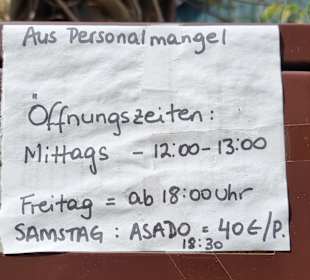 Aus Personalmangel
Öffnungszeiten:
Mittags - 12:00-13:00
Freitag = ab 18:00 Uhr
SAMSTAG : ASADO = 40€/P.
18:30